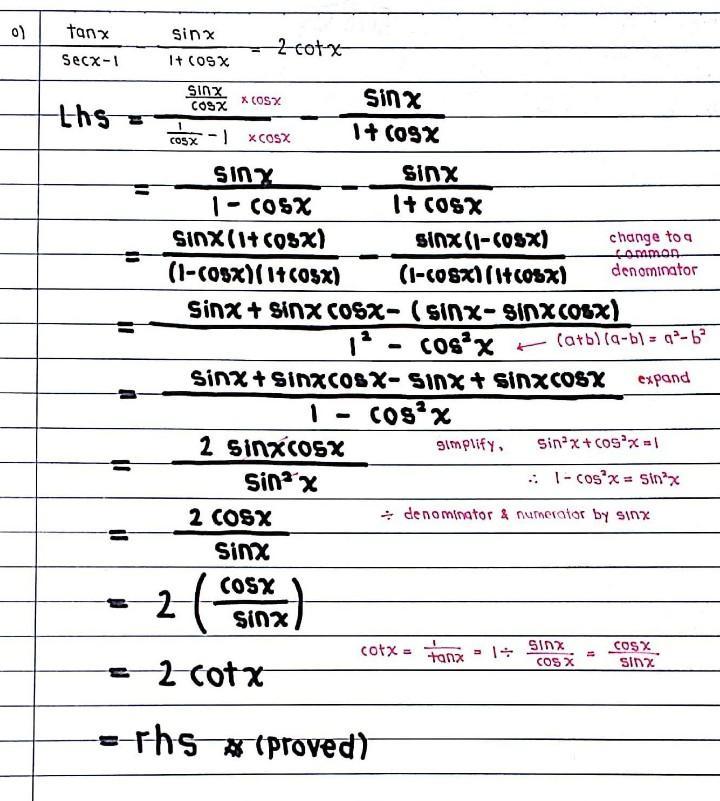 o) tanx/secx-1 - sinx/1+cosx = 2cotx
Lhs = (sinx/cosx xcosx)/(1/cosx -1 xcosx) - sinx/1+cosx
= sinx/1-cosx - sinx/1+cosx
= sinx(1+cosx)/(1-cosx)(1+cosx) - sinx(1-cosx)/(1-cosx)(1+cosx) change to a common denominator
= sinx + sinxcosx - (sinx - sinxcosx)/1² - cos²x ← (a+b)(a-b) = a²-b²
= sinx + sinxcosx - sinx + sinxcosx/1 - cos²x expand
= 2 sinxcosx/sin²x simplify, sin²x+cos²x=1
∴ 1-cos²x = sin²x
= 2cosx/sinx ÷ denominator & numerator by sinx
= 2(cosx/sinx)
= 2cotx cotx = 1/tanx = 1÷ sinx/cosx = cosx/sinx
= rhs (proved)